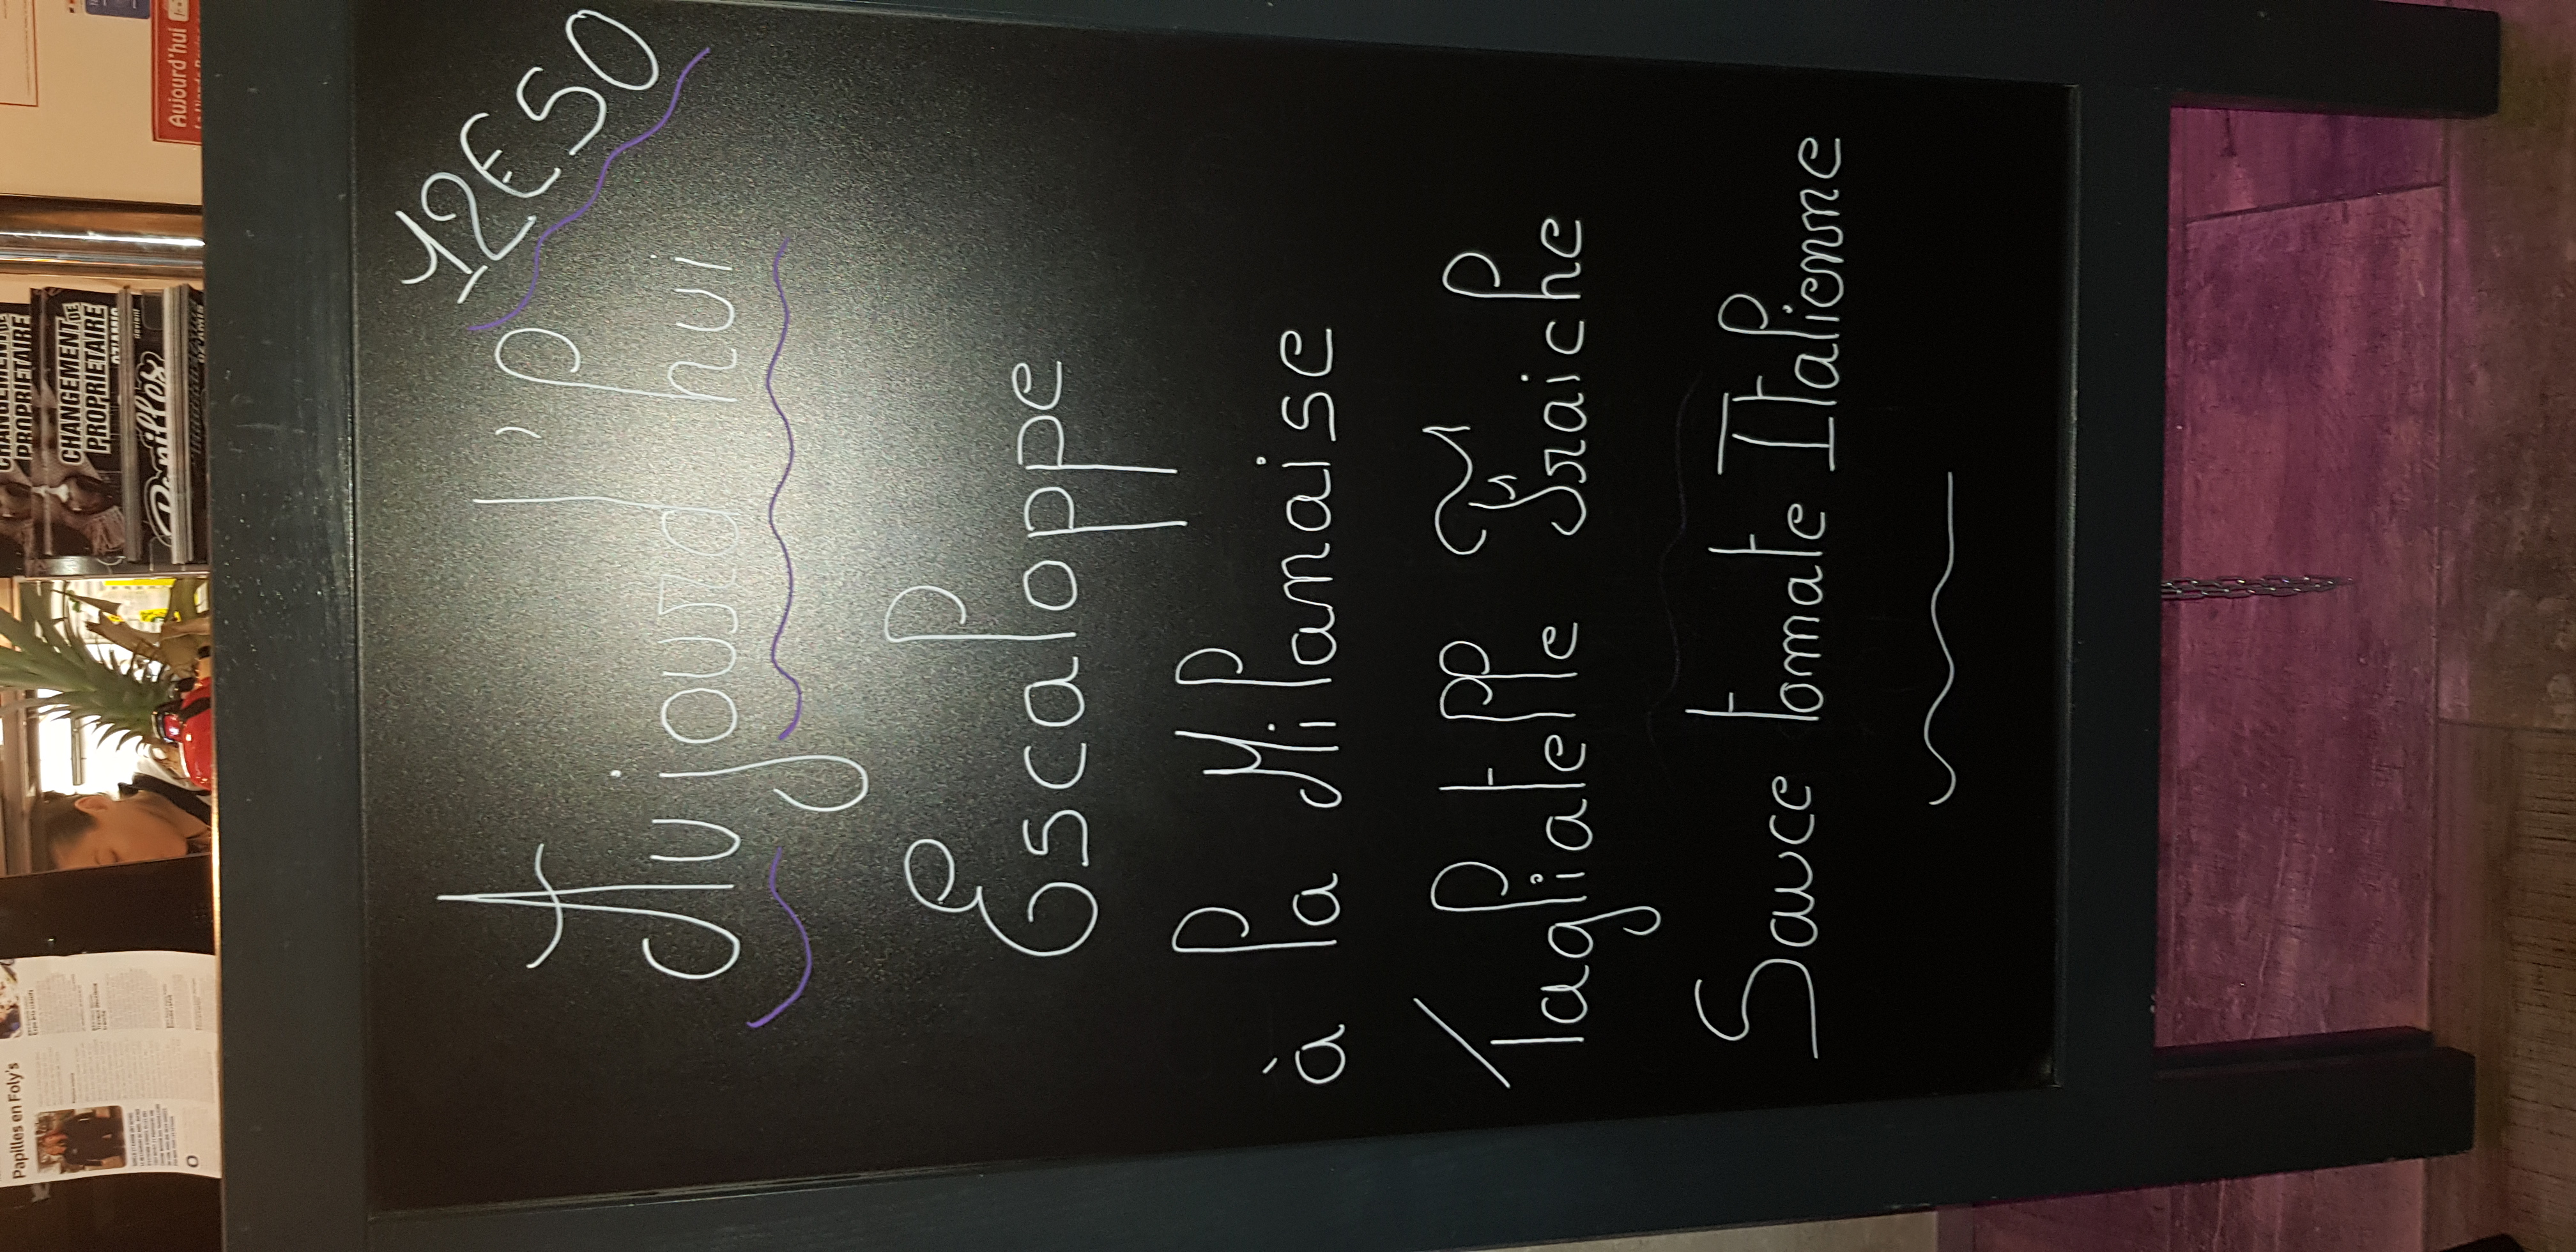 12€50
Aujourd'hui
Escaloppe
à la Milanaise
Tagliatelle fraiche
Sauce tomate Italienne
Aujourd'hui
CHANGEMENT DE
PROPRIETAIRE
CHANGEMENT DE
PROPRIETAIRE
Papilles
Papilles en Foly's